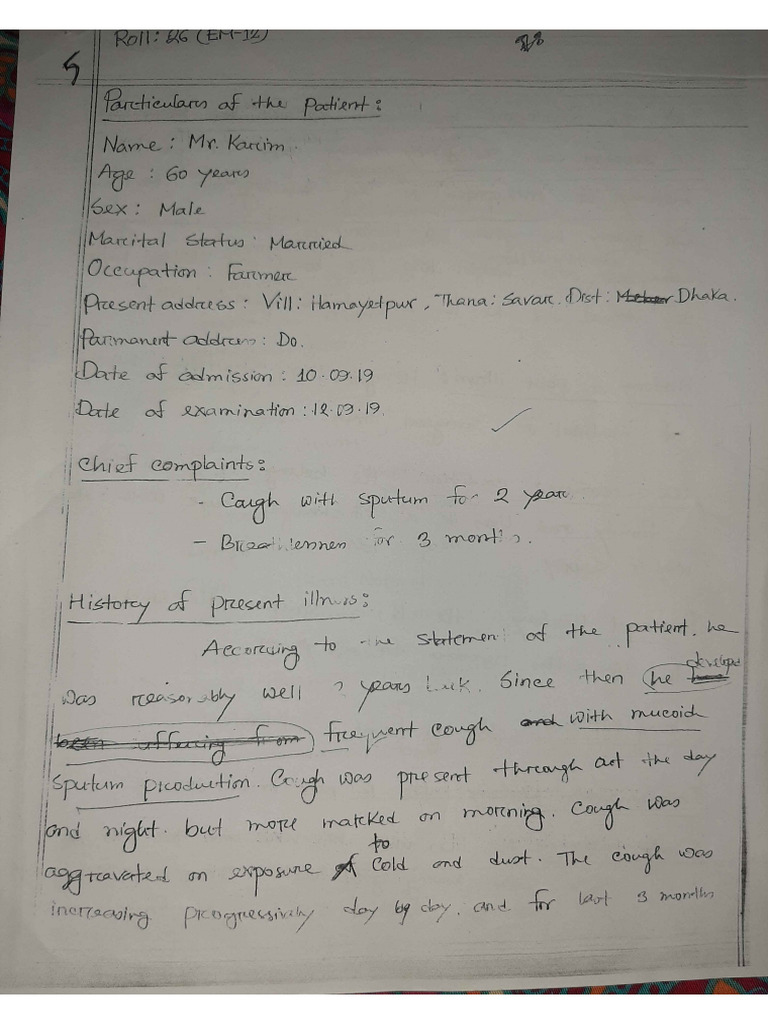 Roll: 26 (EM-12)
5
Particulars of the Patient:
Name: Mr. Karim.
Age : 60 years
Sex: Male
Marital Status: Married
Occupation: Farmer
Present address: Vill: Hamayetpur, Thana: Savar. Dist: Dhaka.
Parmanent address: Do.
Date of admission: 10.09.19
Date of examination: 12.09.19.
Chief complaints:
- Cough with sputum for 2 year.
- Breathlessness for 3 months.
History of present illness:
According to the statement of the patient, he
developed
was reasonably well 2 years back. Since then he
been suffering from frequent cough and with mucoid
sputum production. Cough was present through out the day
and night. but more marked on morning. Cough was
to
aggravated on exposure cold and dust. The cough was
increasing progressively day by day, and for last 3 months